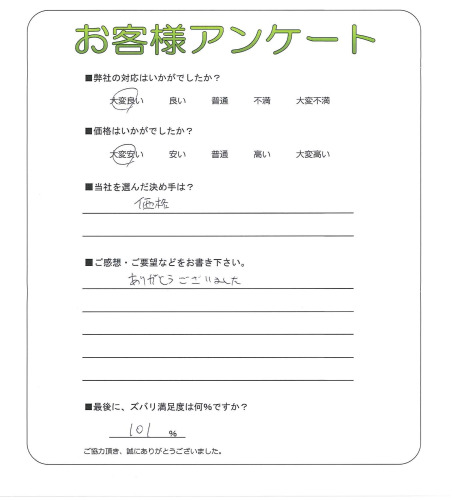 お客様アンケート
■弊社の対応はいかがでしたか？
大変良い 良い 普通 不満 大変不満
■価格はいかがでしたか？
大変安い 安い 普通 高い 大変高い
■当社を選んだ決め手は？
価格
■ご感想・ご要望などをお書き下さい。
ありがとうございました
■最後に、ズバリ満足度は何%ですか？
101 %
ご協力頂き、誠にありがとうございました。